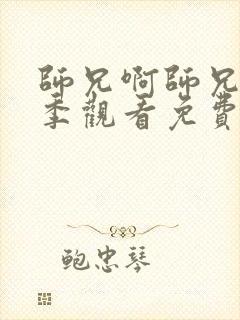 師兄啊師兄
季觀看免費
鮑忠琴